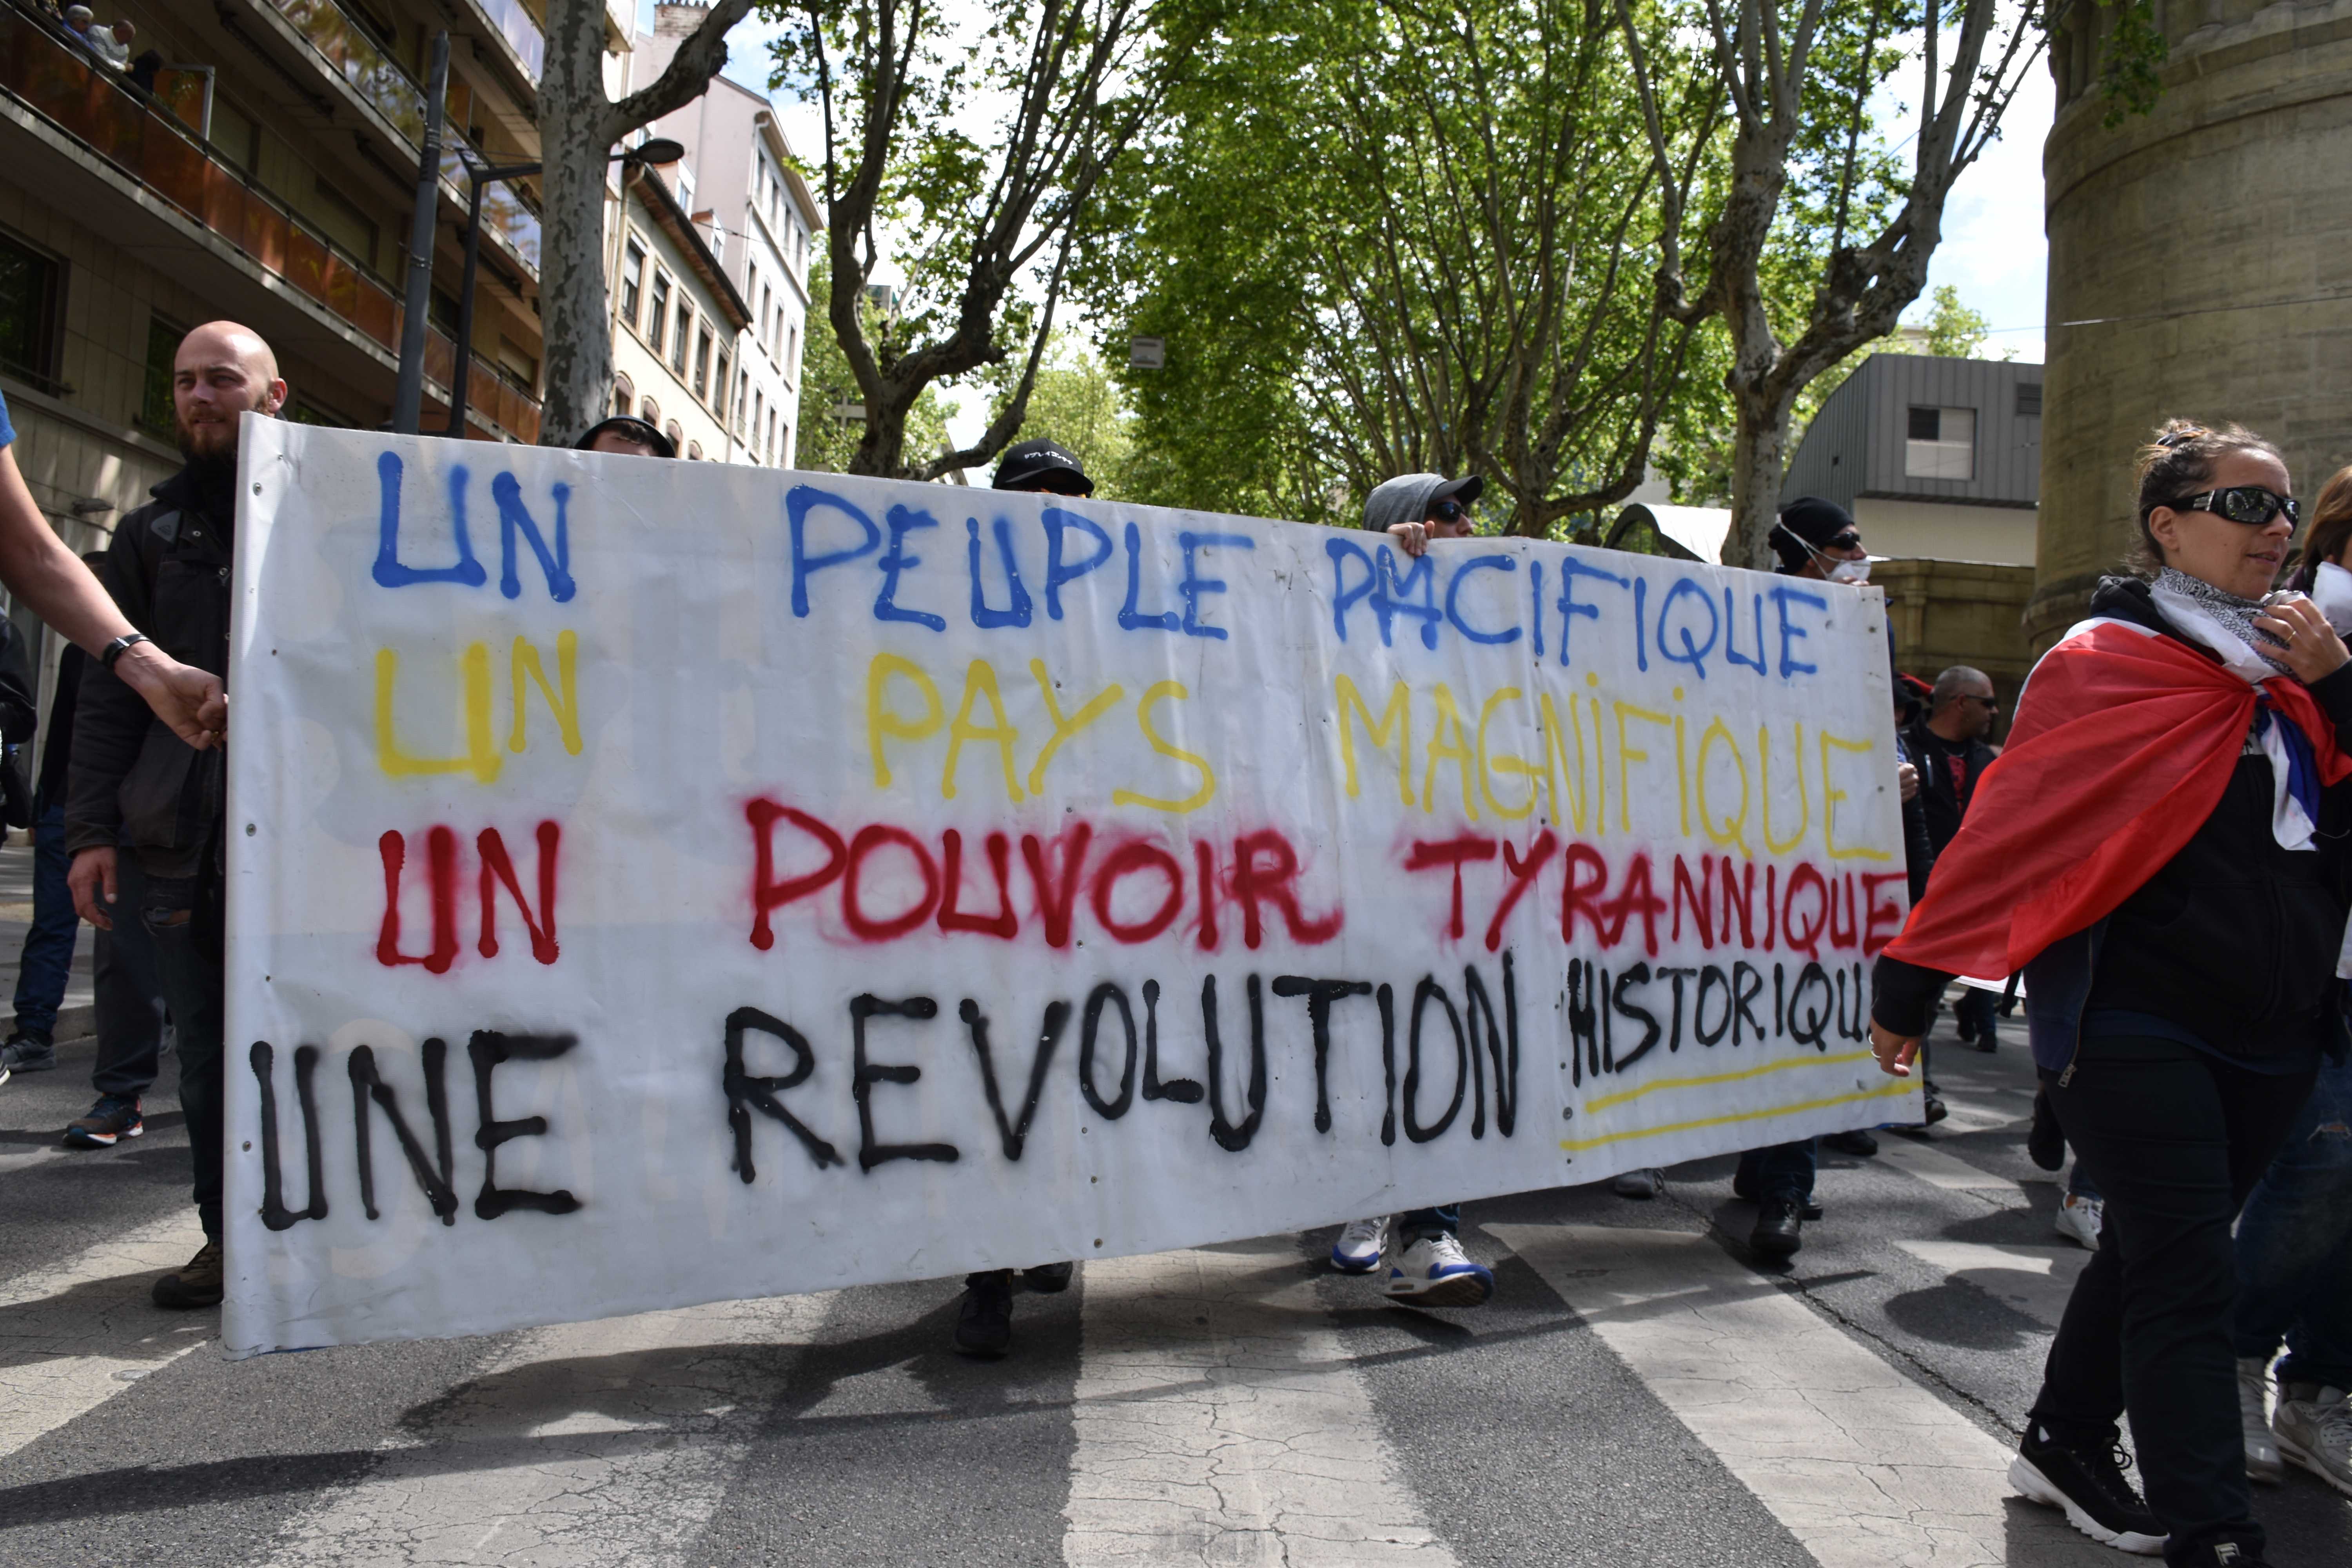 UN PEUPLE PACIFIQUE
UN PAYS MAGNIFIQUE
UN POUVOIR TYRANNIQUE
UNE REVOLUTION HISTORIQU